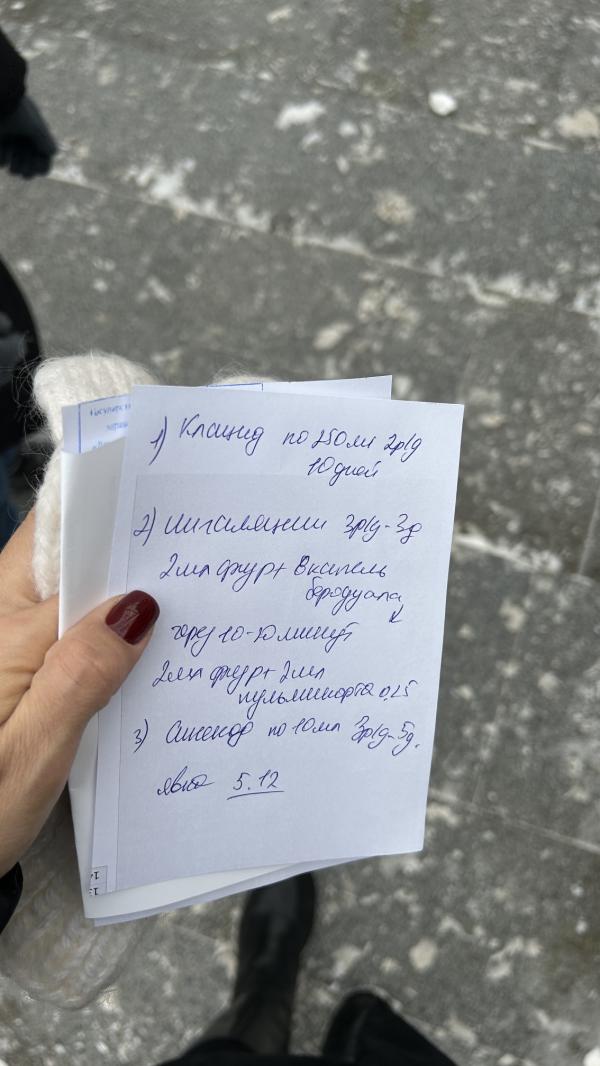 1) Клацид по 250 мл 2р/д
10 дней
2) ингаляции 3р/д - 3д
2 мл физр + 8 капель
беродуала
через 10-20 минут
2 мл физр + 2 мл
пульмикорта 0,25
3) Синекод по 10 мл 3р/д - 5д.
явка 5.12